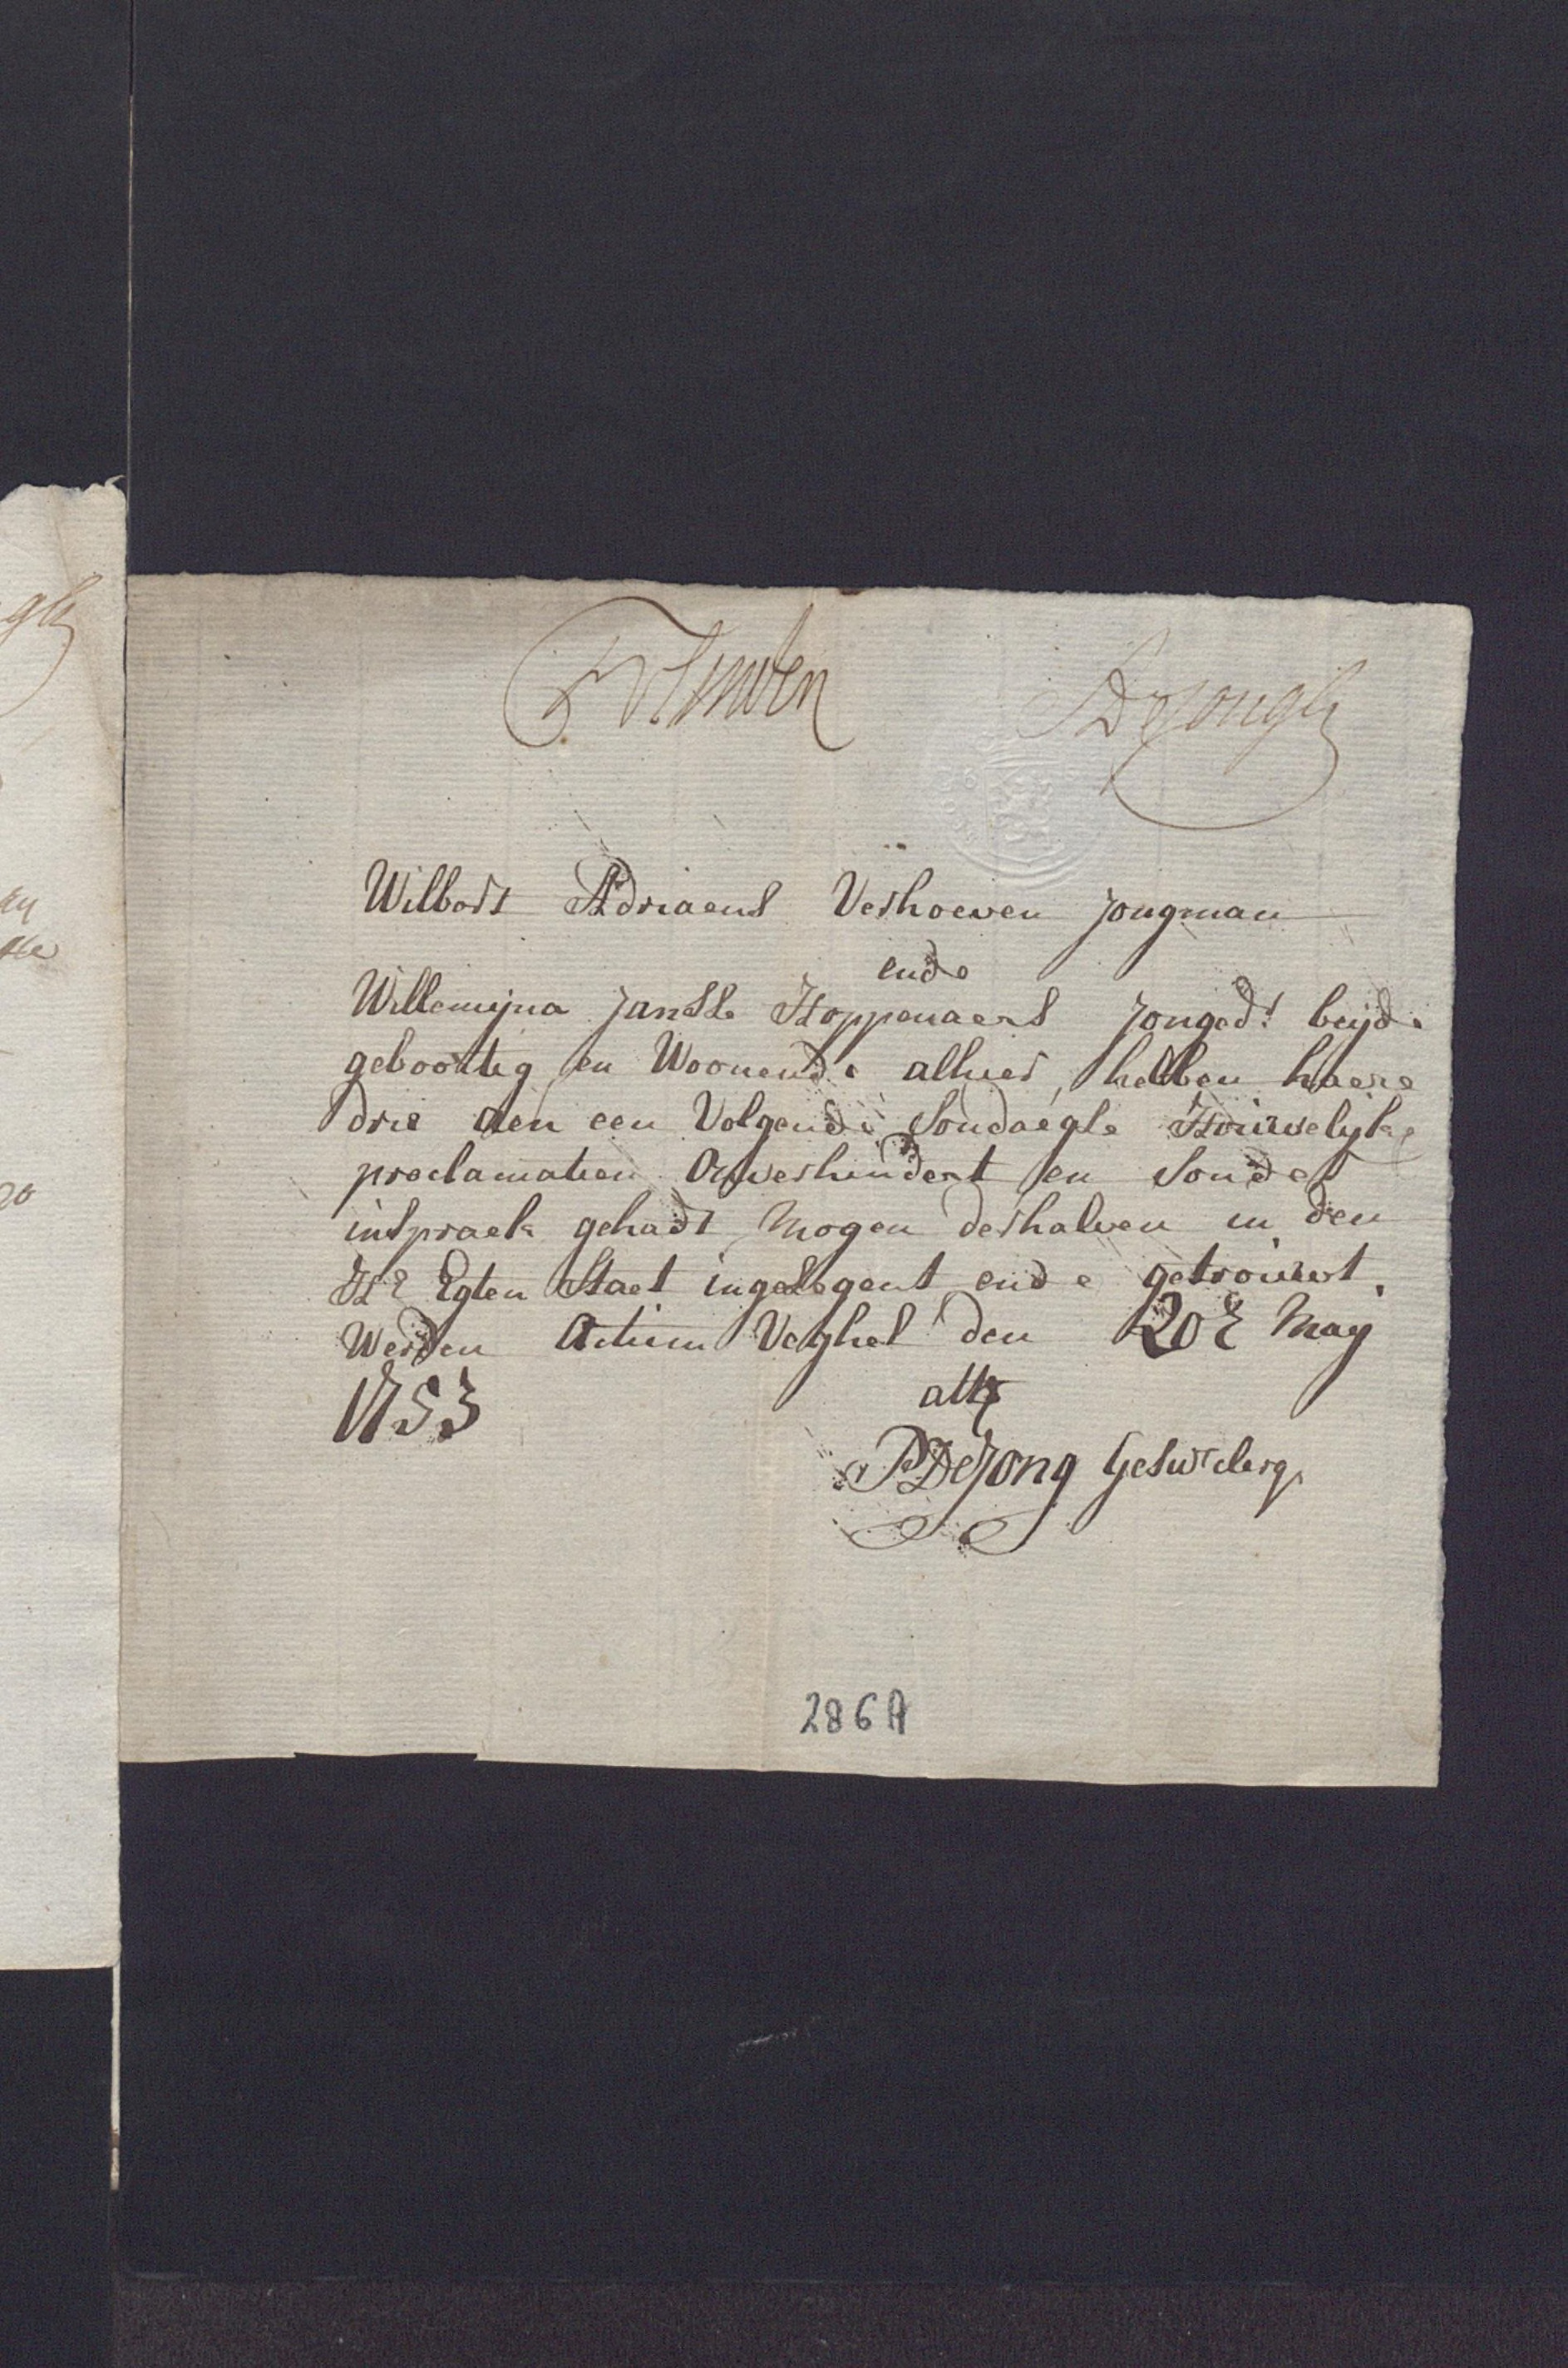 DeJongh
Wilbort Adriaens Verhoeven jongman
ende
Willemijna Jansse Hoppenaers Jonged: beijde
geboortig en Woonende alhier, hebben haere
drie aen een Volgende Sondaegse Houwelijkse
proclamatien Onverhindert en Sonder
intpraek gehadt, Mogen derhalven in den
H: Egten Staet ingesegent ende getrouwet
werden Actum Veghel den 20e May
1753
att
PDeJong Gesw: clerq
286A